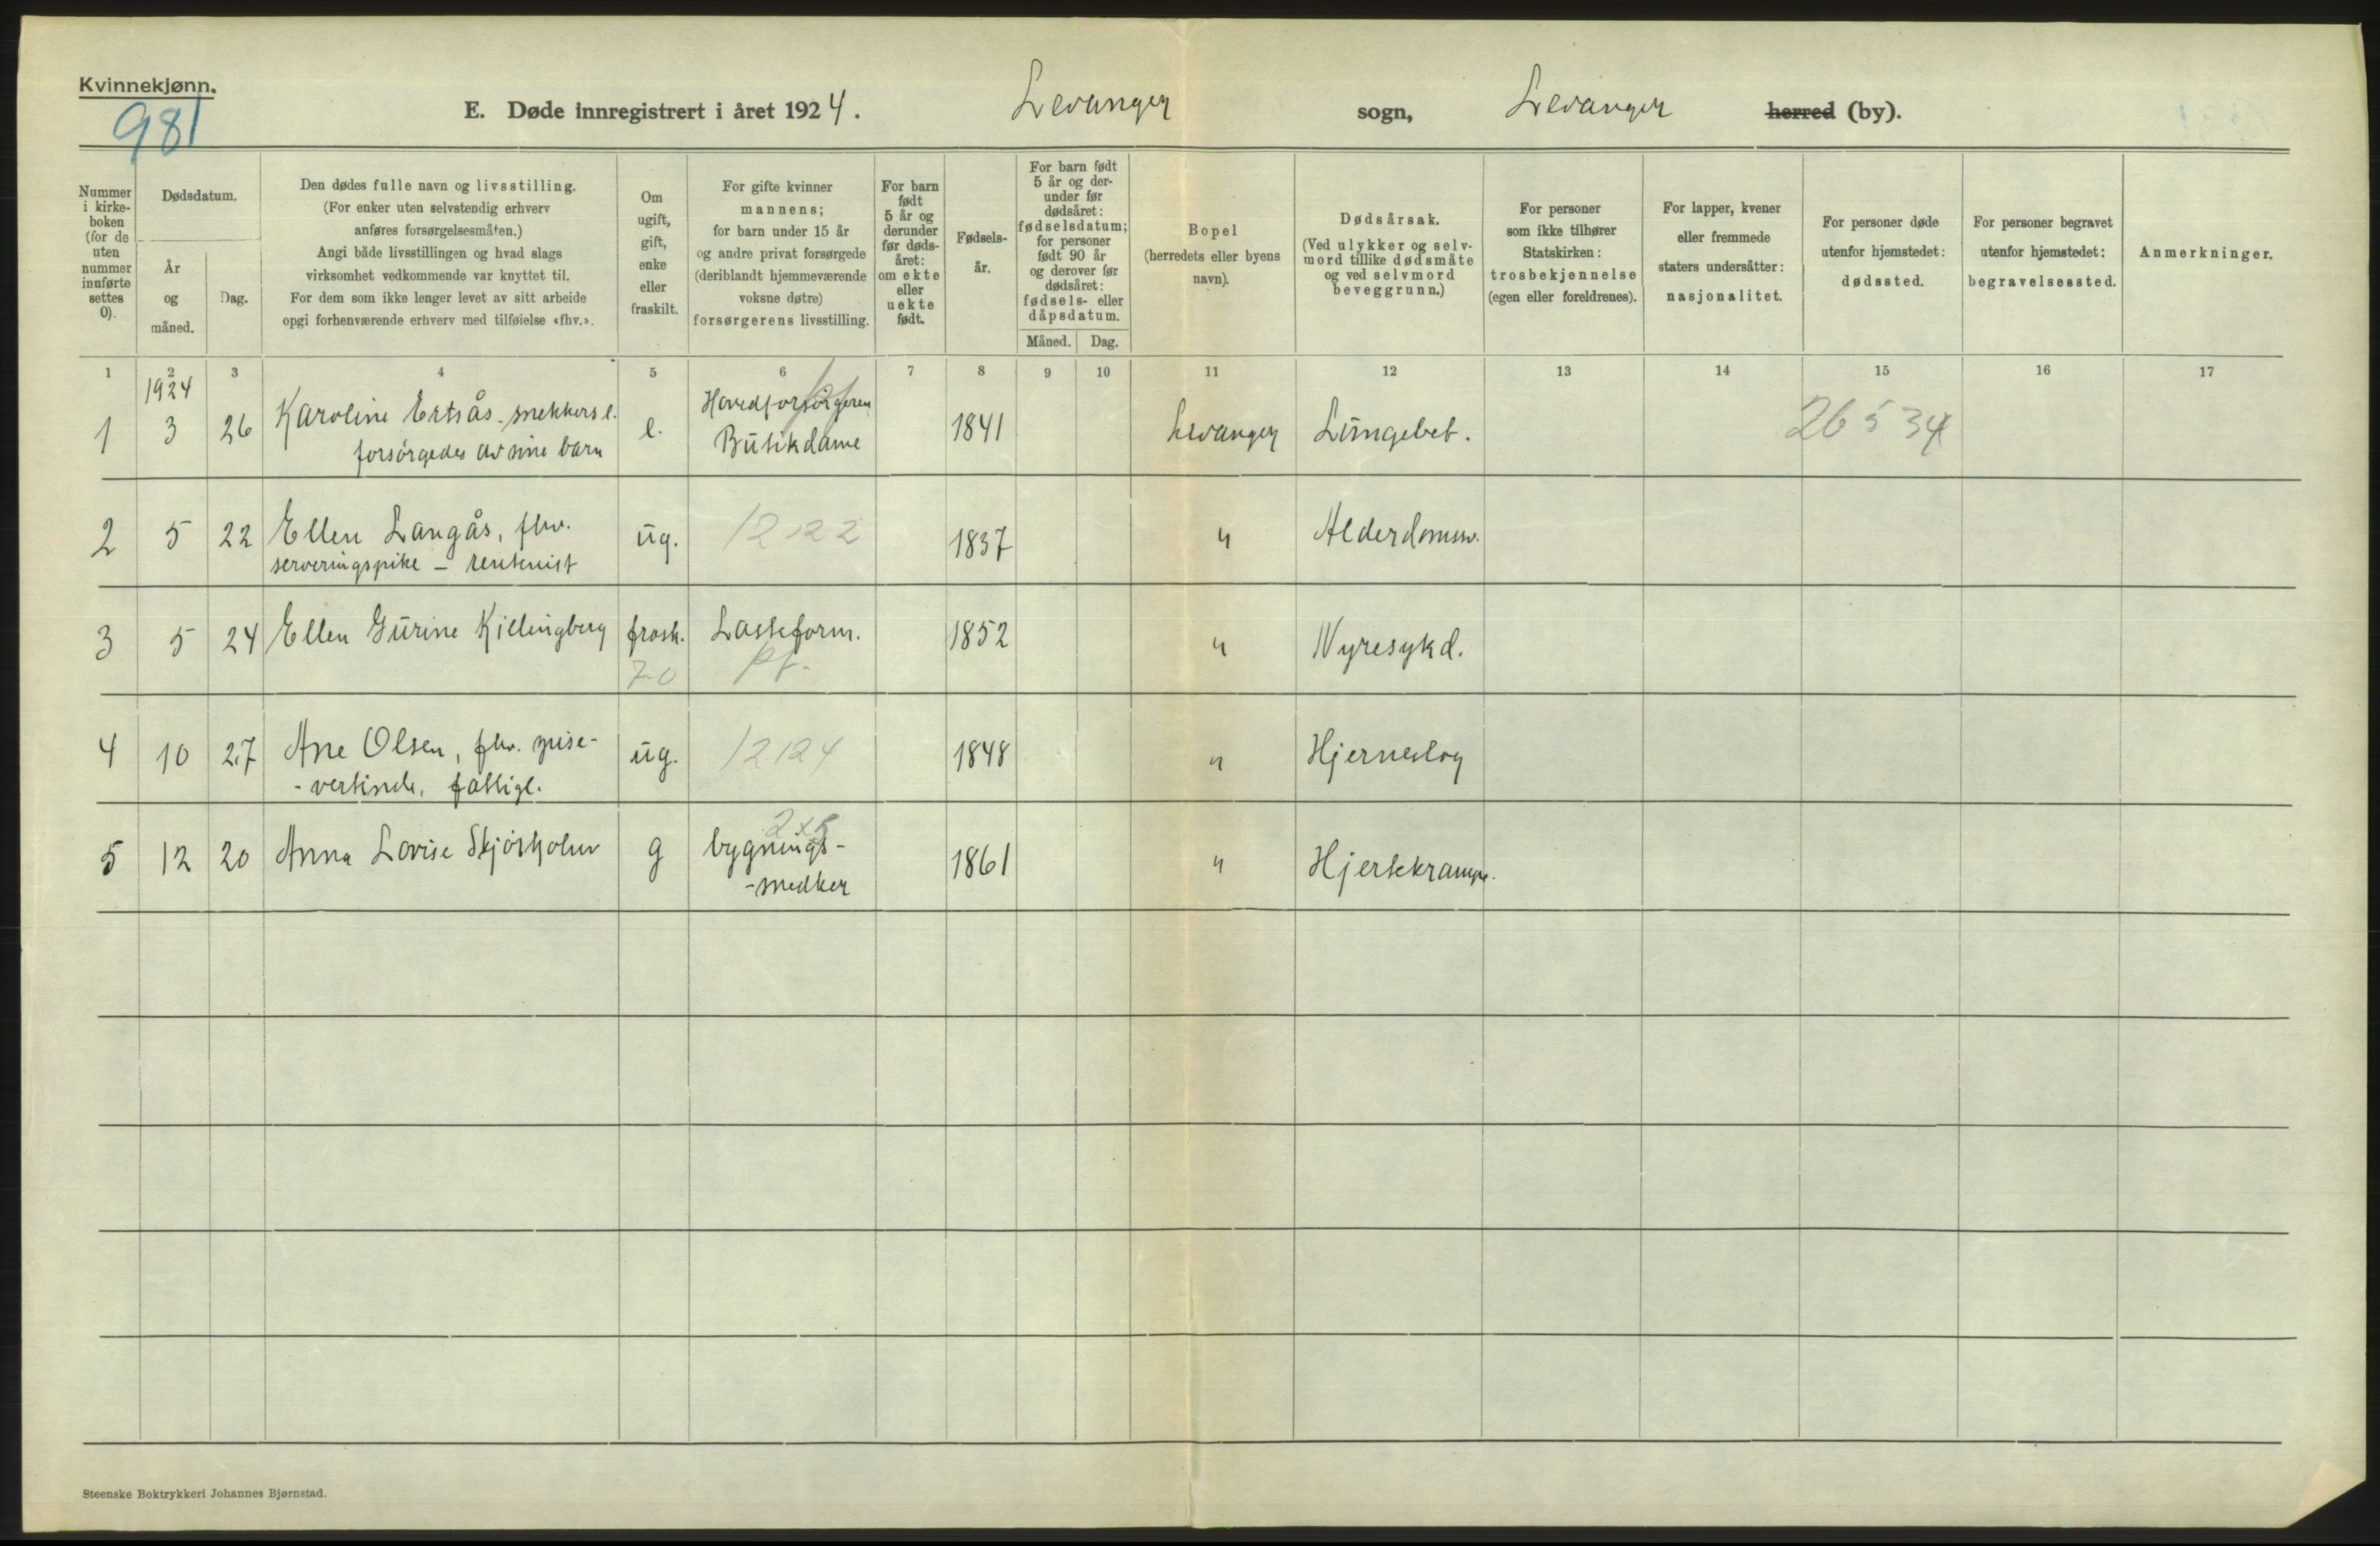 Kvinnekjønn.
981
E. Døde innregistrert i året 1924. Levanger sogn, Levanger herred (by).
Nummer i kirke- boken (for de uten nummer innførte settes 0).
Dødsdatum.
År og måned.
Dag.
Den dødes fulle navn og livsstilling.
(For enker uten selvstendig erhverv
anføres forsørgelsesmåten.)
Angi både livsstillingen og hvad slags
virksomhet vedkommende var knyttet til.
For dem som ikke lenger levet av sitt arbeide
opgi forhenværende erhverv med tilføielse «fhv.».
Om ugift, gift, enke eller fraskilt.
For gifte kvinner
mannens;
for barn under 15 år
og andre privat forsørgede
(deriblandt hjemmeværende
voksne døtre)
forsørgerens livsstilling.
For barn født 5 år og derunder før døds- året: om ekte eller uekte født.
Fødsels- år.
For barn født 5 år og der- under før dødsåret: fødselsdatum; for personer født 90 år og derover før dødsåret: fødsels- eller dåpsdatum.
Måned. Dag.
Bopel
(herredets eller byens
navn).
Dødsårsak.
(Ved ulykker og selv-
mord tillike dødsmåte
og ved selvmord
beveggrunn.)
For personer
som ikke tilhører
Statskirken:
trosbekjennelse
(egen eller foreldrenes).
For lapper, kvener
eller fremmede
staters undersåtter:
nasjonalitet.
For personer døde
utenfor hjemstedet:
dødssted.
For personer begravet
utenfor hjemstedet:
begravelsessted.
Anmerkninger.
1 2 3 4 5 6 7 8 9 10 11 12 13 14 15 16 17
1924
1 3 26 Karoline Ertsås - snekkers e. e. Hovedforsørgeren 1841 Levanger Lungebet. 26534
forsørgedes av sine barn Butikdame
2 5 22 Ellen Langås, fhv. ug. 12122 1837 " Alderdomssv.
serveringspike - rentenist
3 5 24 Ellen Gurine Killingberg frask. Lasteform. 1852 " Nyresykd.
70 pf.
4 10 27 Ane Olsen, fhv. spise- ug. 12124 1848 " Hjerneslag
- vertinde, fattigl.
2x5
5 12 20 Anna Lovise g bygnings- 1861 " Hjertekrampe.
-snedker
Steenske Boktrykkeri Johannes Bjørnstad.